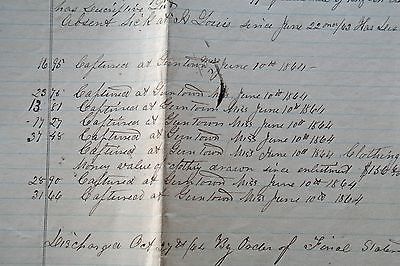 has
Absent Sick at St Louis since June 22nd/63 Has
16 95 Captured at Guntown June 10th 1864-
23 75 Captured at Guntown Miss June 10th 1864
13 51 Captured at Guntown Miss June 10th 1864
17 27 Captured at Guntown Miss June 10th 1864
37 48 Captured at Guntown Miss June 10th 1864
Captured at Guntown Miss June 10th 1864, Clothing
Money value of clothing drawn since enlistment
28 90 Captured at Guntown Miss June 10th 1864
31 66 Captured at Guntown Miss June 10th 1864
Discharged Oct 27th/64 By Order of Final